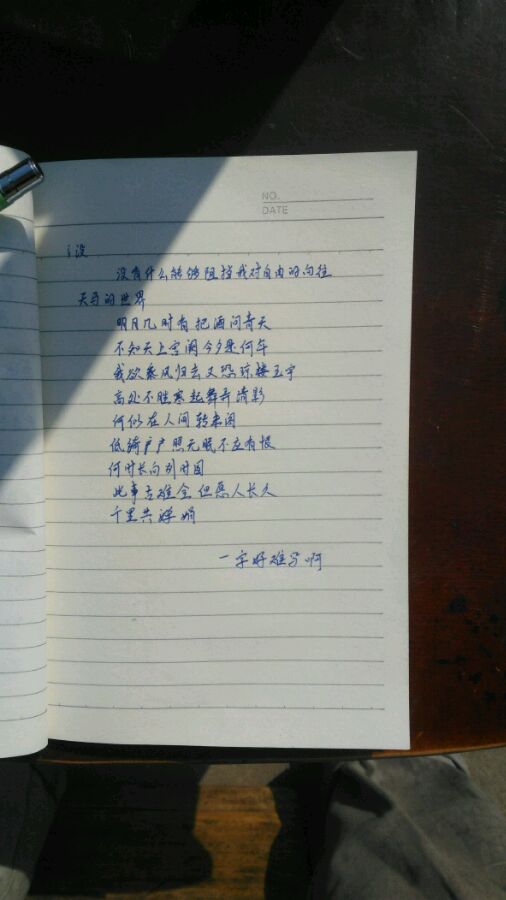 NO.
DATE
氵没
没有什么能够阻挡我对自由的向往
天马的世界
明月几时有把酒问青天
不知天上宫阙今夕是何年
我欲乘风归去又恐琼楼玉宇
高处不胜寒起舞弄清影
何似在人间转朱阁
低绮户户照无眠不应有恨
何时长向别时圆
此事古难全但愿人长久
千里共婵娟
一字好难写啊